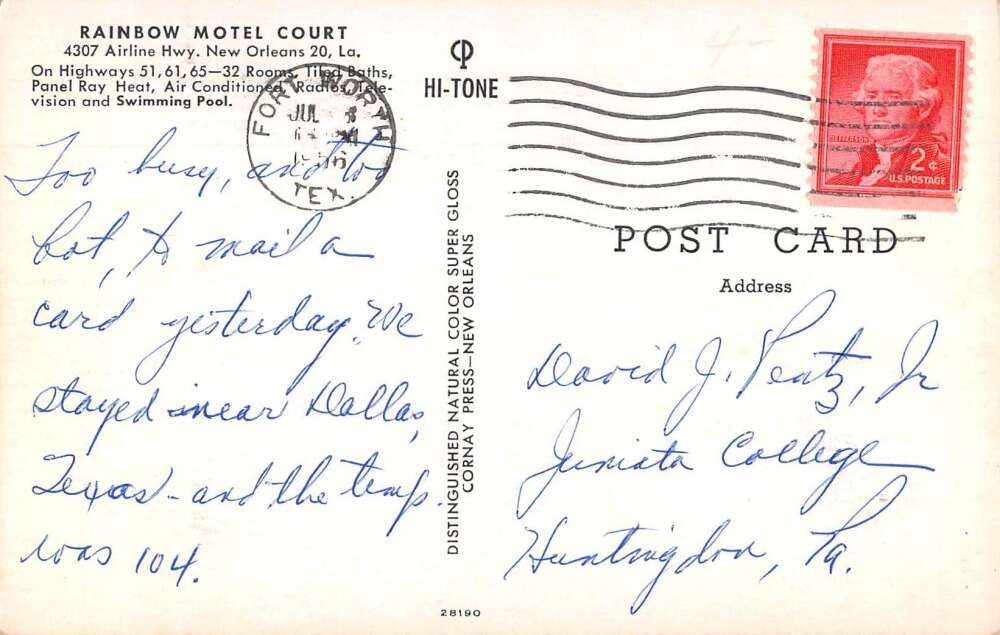 RAINBOW MOTEL COURT
4307 Airline Hwy. New Orleans 20, La.
On Highways 51, 61, 65—32 Rooms, Tiled Baths,
Panel Ray Heat, Air Conditioned, Radios, Tele-
vision and Swimming Pool.
Too busy, and too
hot, to mail a
card yesterday. We
stayed near Dallas,
Texas - and the temp.
was 104.
HI-TONE
FORT WORTH
JUL
TEX.
DISTINGUISHED NATURAL COLOR SUPER GLOSS
CORNAY PRESS—NEW ORLEANS
JEFFERSON
2¢
U.S. POSTAGE
POST CARD
Address
David J. Pentz, Jr
Juniata College
Huntingdon, Pa.
28190